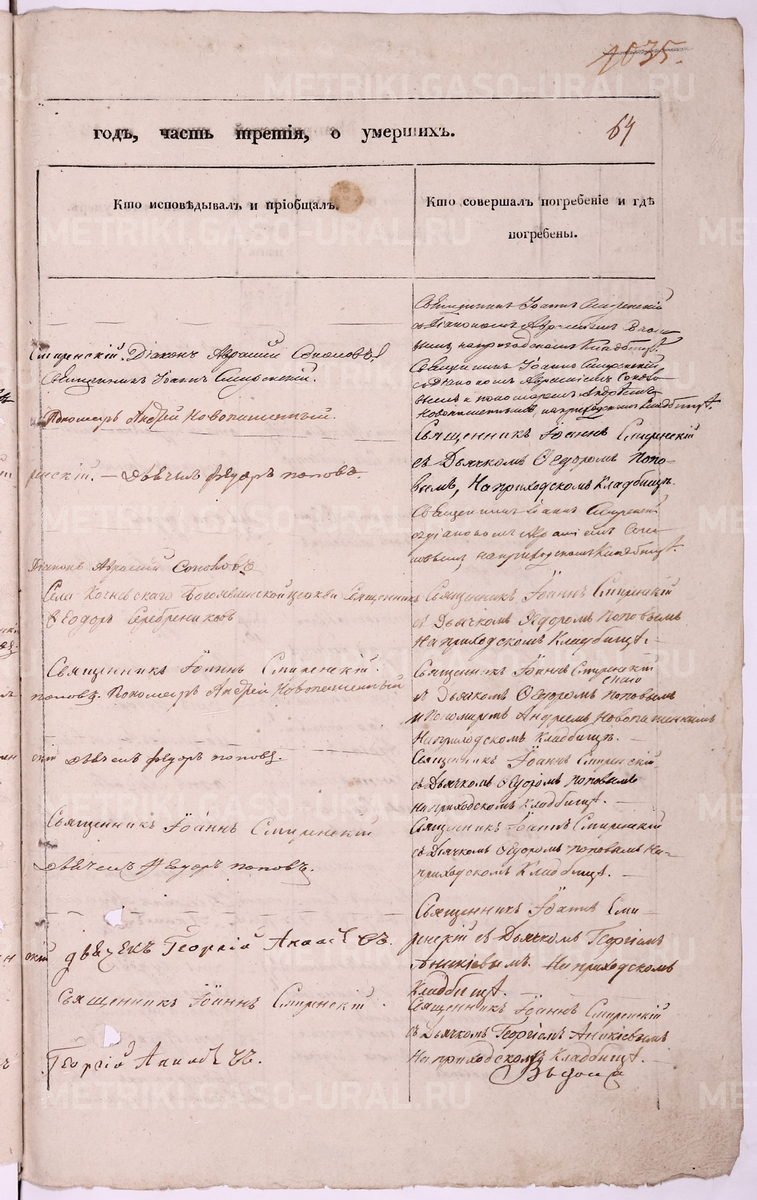 1035.
годъ, часть третія, о умершихъ.
64
Кто исповѣдывалъ и пріобщалъ.
Кто совершалъ погребеніе и гдѣ
погребены.
Священникъ Іоаннъ Смиренскій
съ Діакономъ
на приходскомъ Кладбищѣ.
Смиренскій. Діаконъ Аврамій Соколовъ
Священникъ Іоаннъ Смиренскій.
Священникъ Іоаннъ Смиренскій
съ Діакономъ Авраміемъ Соколо
вымъ и пономаремъ Андреемъ
Новопашеннымъ, на приходскомъ Кладбищѣ.
Пономарь Андрей Новопашенный.
Священникъ Іоаннъ Смиренскій
съ Дьячкомъ Ѳедоромъ Попо-
вымъ, На приходскомъ Кладбищѣ.
ренскій. — дьячекъ федоръ поповъ.
Священникъ Іоаннъ Смиренскій
съ діакономъ Авраміемъ Соко
ловымъ, на приходскомъ Кладбищѣ.
Діаконъ Аврамій Соколовъ
Села Кочневскаго Богоявленской церкви Священникъ
Ѳеодоръ Серебрениковъ
Священникъ Іоаннъ Смиренскій
съ Дьячкомъ Ѳедоромъ Поповымъ
На приходскомъ Кладбищѣ.
Священникъ Іоаннъ Смиренскій.
поповъ. Пономарь Андрей Новопашенный
Священникъ Іоаннъ Смиренскій
съ Дьячкомъ Ѳедоромъ Поповымъ
и Пономаремъ Андреемъ Новопашеннымъ
На приходскомъ Кладбищѣ.
скій дьячекъ федоръ поповъ.
Священникъ Іоаннъ Смиренскій
съ Дьячкомъ Ѳедоромъ Поповымъ
на приходскомъ Кладбищѣ.
Священникъ Іоаннъ Смиренскій
дьячекъ Федоръ поповъ.
Священникъ Іоаннъ Смиренскій
съ Дьячкомъ Ѳедоромъ Поповымъ На
приходскомъ Кладбищѣ.
Священникъ Іоаннъ Сми-
ренскій съ Дьячкомъ Георгіемъ
Аникіевымъ. На приходскомъ
Кладбищѣ.
скій дьячекъ Георгій Аникіевъ.
Священникъ Іоаннъ Смиренскій.
Священникъ Іоаннъ Смиренскій
съ Дьячкомъ Георгіемъ Аникіевымъ
На приходскомъ Кладбищѣ.
Георгій Аникіевъ.
METRIKI.GASO-URAL.RU